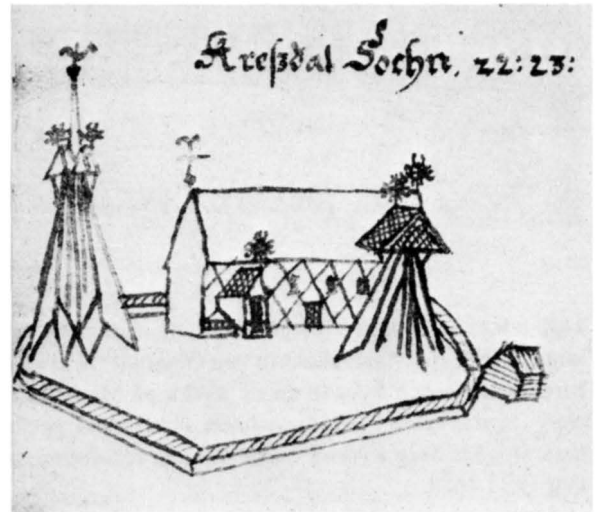 Kreßdal Sochn. 22: 23: